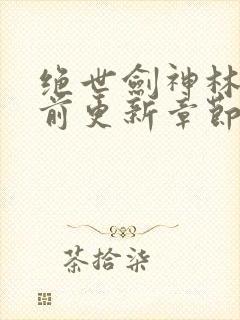 绝世劍神林
前更新章節
茶拾柒